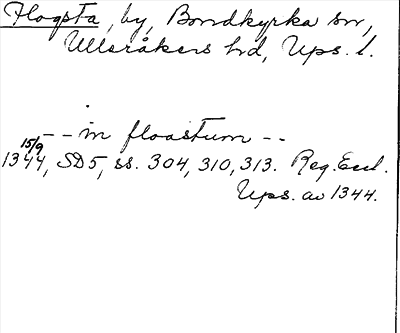 Flogsta, by, Bondkyrka sn,
Ulleråkers hd, Ups. l.
- - in floastum - -
15/9
1344, SD5, ss. 304, 310, 313. Reg. Eccl.
Ups. av 1344.